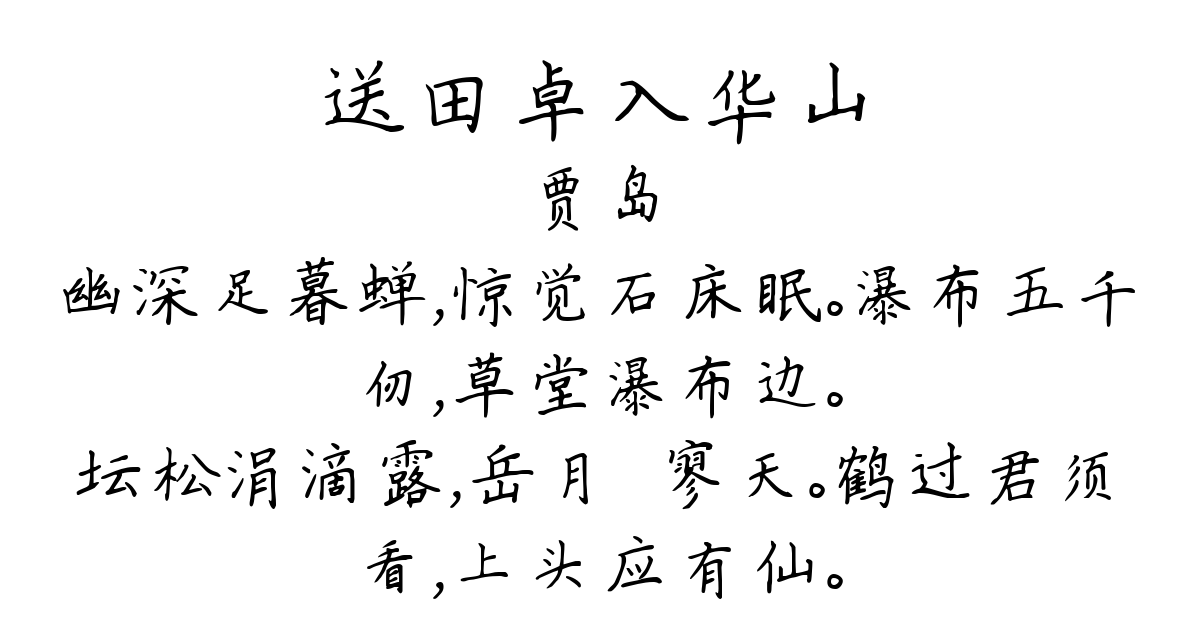 送田卓入华山
贾岛
幽深足暮蝉,惊觉石床眠。瀑布五千
仞,草堂瀑布边。
坛松涓滴露,岳月 寥天。鹤过君须
看,上头应有仙。